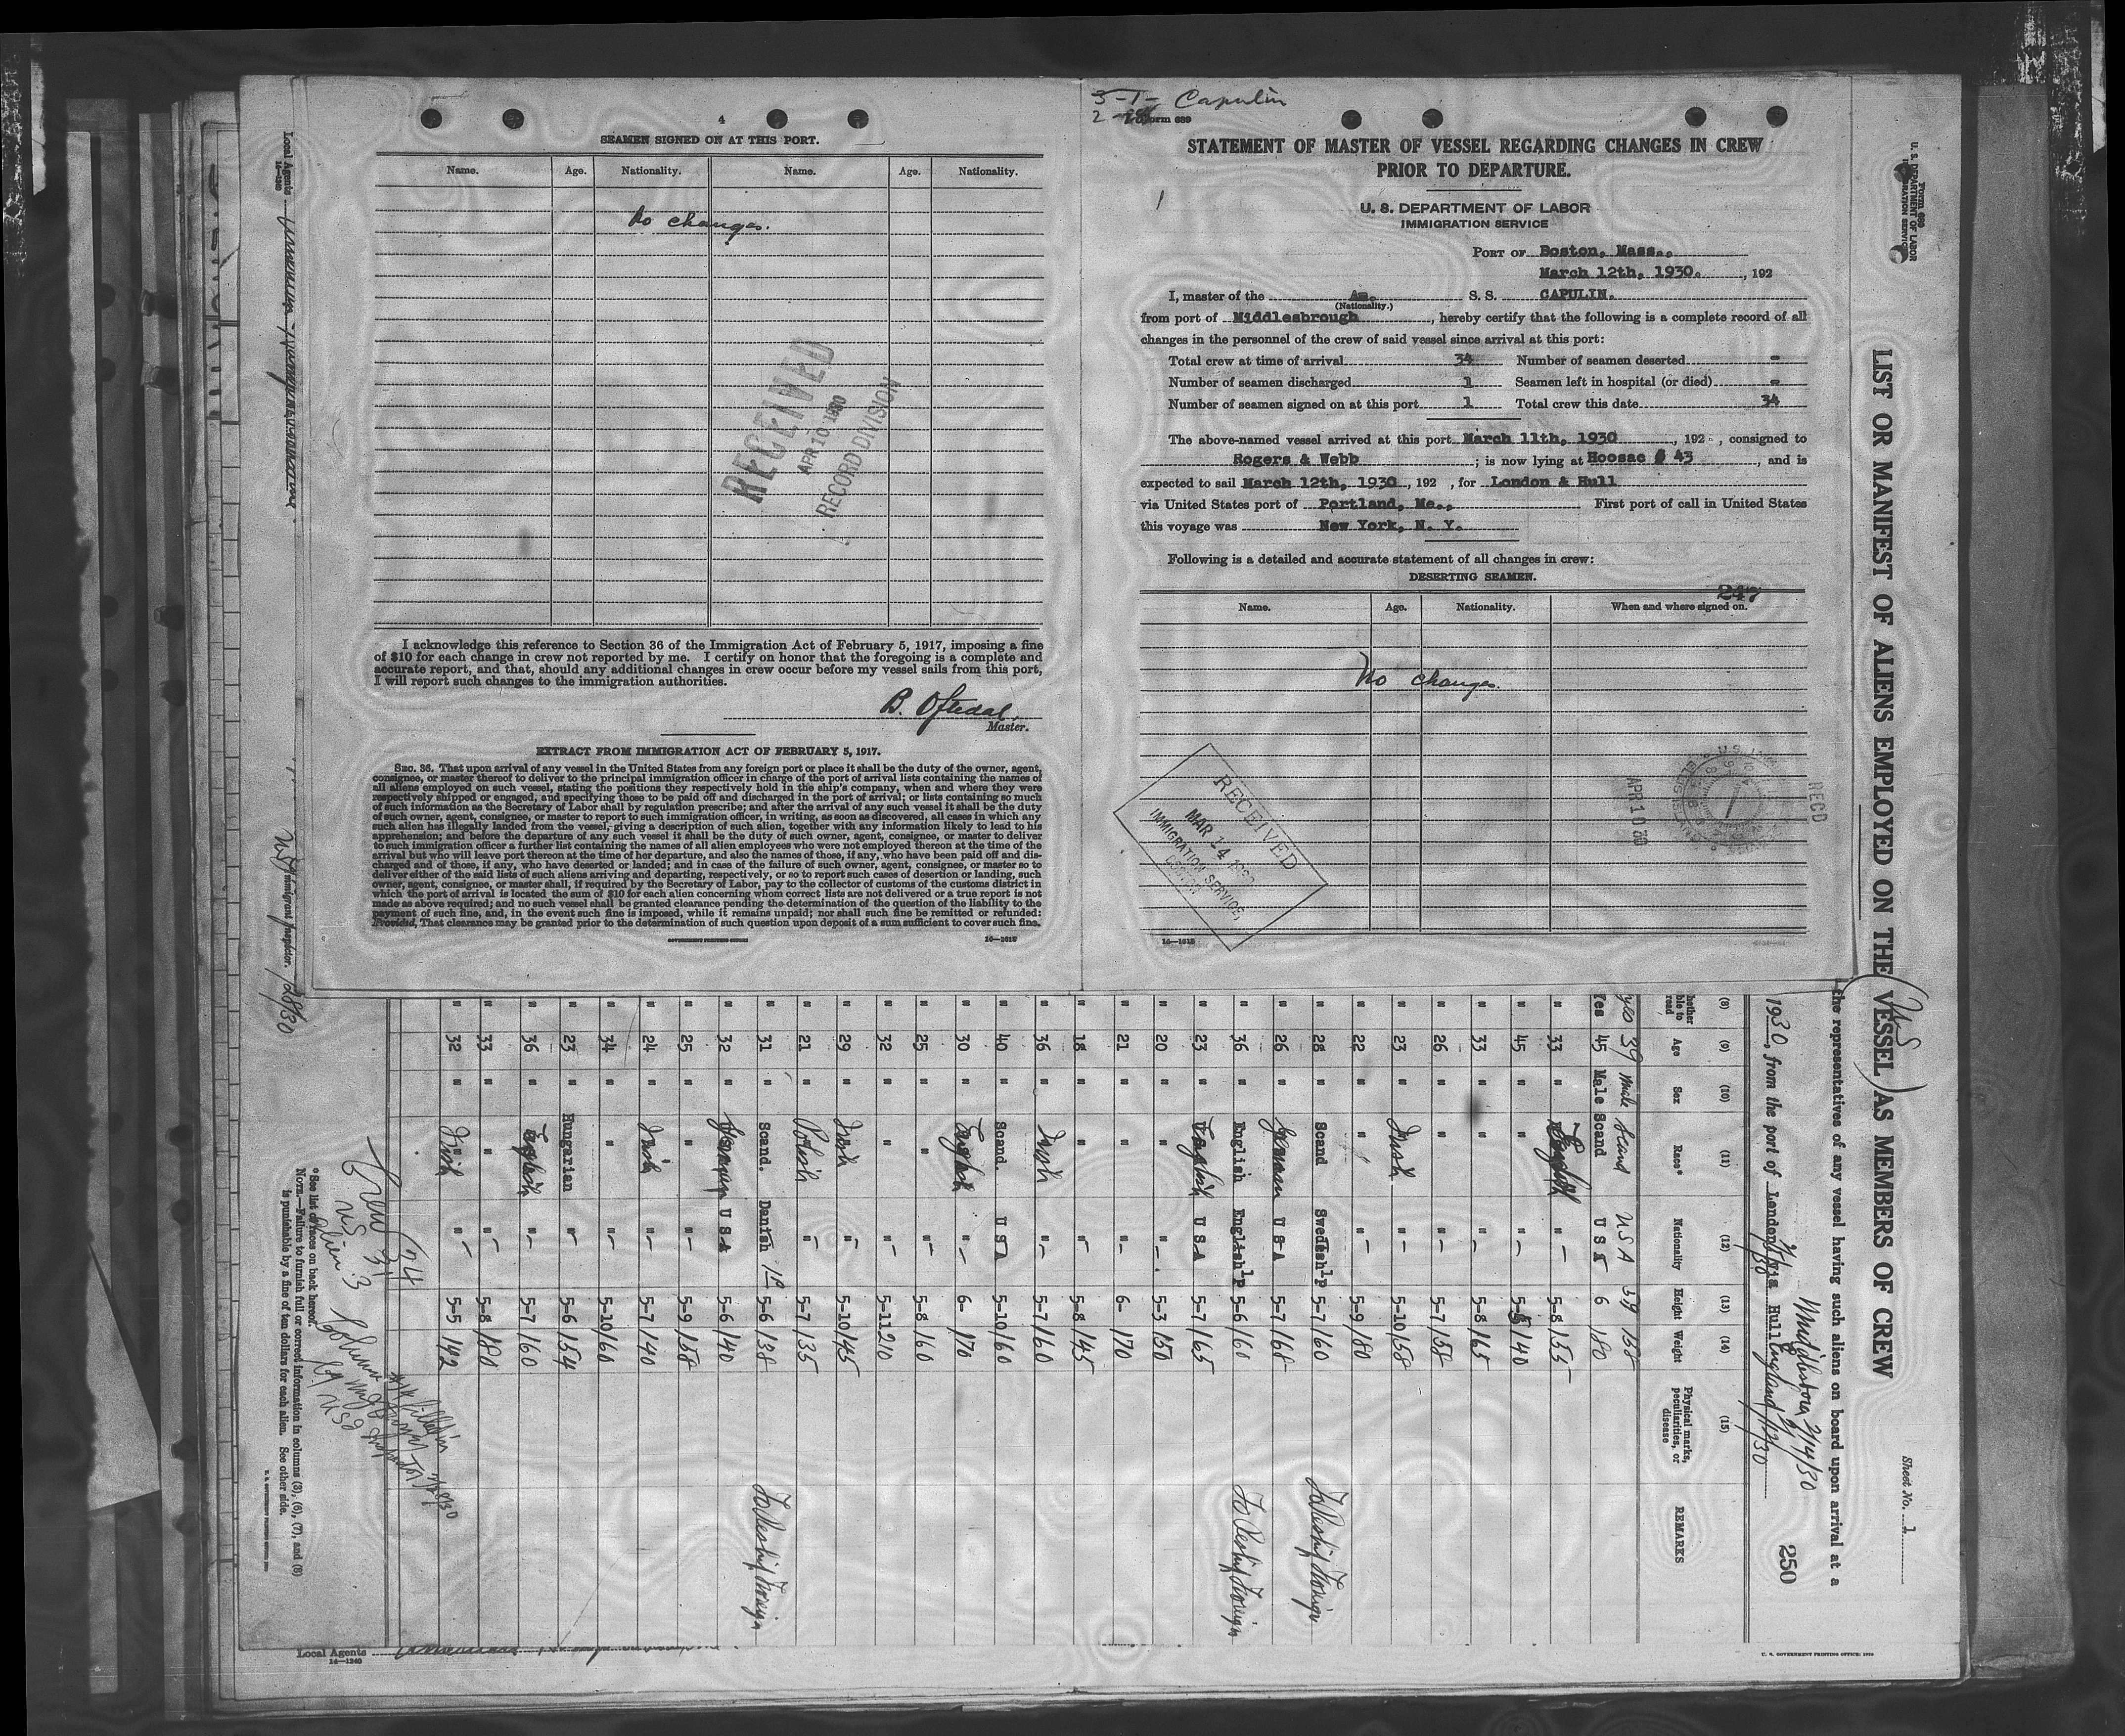 4
SEAMEN SIGNED ON AT THIS PORT.
Name. Age. Nationality. Name. Age. Nationality.
No changes.
RECEIVED
APR 10 1930
RECORD DIVISION
I acknowledge this reference to Section 36 of the Immigration Act of February 5, 1917, imposing a fine
of $10 for each change in crew not reported by me. I certify on honor that the foregoing is a complete and
accurate report, and that, should any additional changes in crew occur before my vessel sails from this port,
I will report such changes to the immigration authorities.
B. Oftedal
Master.
EXTRACT FROM IMMIGRATION ACT OF FEBRUARY 5, 1917.
SEC. 36. That upon arrival of any vessel in the United States from any foreign port or place it shall be the duty of the owner, agent,
consignee, or master thereof to deliver to the principal immigration officer in charge of the port of arrival lists containing the names of
all aliens employed on such vessel, stating the positions they respectively hold in the ship's company, when and where they were
respectively shipped or engaged, and specifying those to be paid off and discharged in the port of arrival; or lists containing so much
of such information as the Secretary of Labor shall by regulation prescribe; and after the arrival of any such vessel it shall be the duty
of such owner, agent, consignee, or master to report to such immigration officer, in writing, as soon as discovered, all cases in which any
such alien has illegally landed from the vessel, giving a description of such alien, together with any information likely to lead to his
apprehension; and before the departure of any such vessel it shall be the duty of such owner, agent, consignee, or master to deliver
to such immigration officer a further list containing the names of all alien employees who were not employed thereon at the time of the
arrival but who will leave port thereon at the time of her departure, and also the names of those, if any, who have been paid off and dis-
charged and of those, if any, who have deserted or landed; and in case of the failure of such owner, agent, consignee, or master so to
deliver either of the said lists of such aliens arriving and departing, respectively, or so to report such cases of desertion or landing, such
owner, agent, consignee, or master shall, if required by the Secretary of Labor, pay to the collector of customs of the customs district in
which the port of arrival is located the sum of $10 for each alien concerning whom correct lists are not delivered or a true report is not
made as above required; and no such vessel shall be granted clearance pending the determination of the question of the liability to the
payment of such fine, and, in the event such fine is imposed, while it remains unpaid; nor shall such fine be remitted or refunded:
Provided, That clearance may be granted prior to the determination of such question upon deposit of a sum sufficient to cover such fine.
GOVERNMENT PRINTING OFFICE 14—1615
3-1- Capulin
2 Form 689
STATEMENT OF MASTER OF VESSEL REGARDING CHANGES IN CREW
PRIOR TO DEPARTURE.
U. S. DEPARTMENT OF LABOR
IMMIGRATION SERVICE
PORT OF Boston, Mass.,
March 12th, 1930. , 192
I, master of the Am. S. S. CAPULIN.
(Nationality.)
from port of Middlesbrough , hereby certify that the following is a complete record of all
changes in the personnel of the crew of said vessel since arrival at this port:
Total crew at time of arrival 34 Number of seamen deserted -
Number of seamen discharged 1 Seamen left in hospital (or died) -
Number of seamen signed on at this port 1 Total crew this date 34
The above-named vessel arrived at this port March 11th, 1930 , 192 , consigned to
Rogers & Webb ; is now lying at Hoosac # 43 , and is
expected to sail March 12th, 1930 , 192 , for London & Hull
via United States port of Portland, Me., First port of call in United States
this voyage was New York, N. Y.
Following is a detailed and accurate statement of all changes in crew:
DESERTING SEAMEN.
247
Name. Age. Nationality. When and where signed on.
No changes.
RECEIVED
MAR 14 1930
IMMIGRATION SERVICE,
BOSTON
APR 10 30
REC'D
14—1615
Form 689
U. S. DEPARTMENT OF LABOR
IMMIGRATION SERVICE
LIST OR MANIFEST OF ALIENS EMPLOYED ON THE VESSEL AS MEMBERS OF CREW
US
Sheet No. 1
the representatives of any vessel having such aliens on board upon arrival at a
Middlesboro 2/14/30
1930, from the port of London via Hull England
250
(8) (9) (10) (11) (12) (13) (14) (15)
Whether able to read Age Sex Race* Nationality Height Weight Physical marks, peculiarities, or disease REMARKS
yes 39 male Scand USA 5 9 158
Yes 45 Male Scand U S A 6 180
" 33 " English " 5-8 155
" 45 " " " 5-5 140
" 33 " " " 5-8 165
" 26 " " " 5-7 158
" 23 " Irish " 5-10 158
" 22 " " " 5-9 180
" 28 " Scand Swedish 1P 5-7 160 To Reship Foreign
" 26 " German U S A 5-7 168
" 36 " English English 1P 5-6 160 To Reship Foreign
" 23 " English U S A 5-7 165
" 20 " " " 5-3 150
" 21 " " " 6- 170
" 18 " " " 5-8 145
" 36 " Irish " 5-7 160
" 40 " Scand. U S A 5-10 160
" 30 " English " 6- 170
" 25 " " " 5-8 160
" 32 " " " 5-11 210
" 29 " Irish " 5-10 145
" 21 " Polish " 5-7 135
" 31 " Scand. Danish 1P 5-6 138 To Reship Foreign
" 32 " German U S A 5-6 140
" 25 " " " 5-9 158
" 24 " Irish " 5-7 140
" 34 " " " 5-10 160
" 23 " Hungarian " 5-6 154
" 36 " English " 5-7 160
" 33 " " " 5-8 180
" 32 " Irish " 5-5 142
Crew 34
US 31
Alien 3
* See list of races on back hereof.
NOTE.—Failure to furnish full or correct information in columns (3), (6), (7), and (8)
is punishable by a fine of ten dollars for each alien. See other side.
Immigrant Inspector.
Local Agents
14—1240
U. S. GOVERNMENT PRINTING OFFICE: 1928
Local Agents